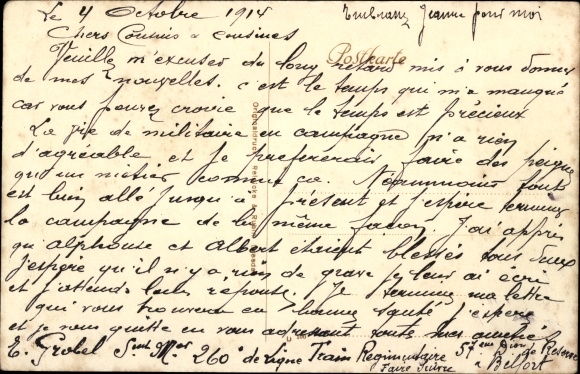 Le 4 Octobre 1914
Embrassez Jeanne pour moi
Chers Cousins & Cousines
Postkarte
Veuillez m'excuser du long retard mis à vous donner
de mes nouvelles. c'est le temps qui m'a manqué
car vous pouvez croire que le temps est précieux
La vie de militaire en campagne n'a rien
d'agréable et je prefererais faire des peignes
qu'un métier comme ca. Néanmoins tout
est bien allé jusqu'à présent et j'espère terminer
la campagne de la même facon. J'ai appris
qu alphonse et Albert étaient blessés tous deux
j'espère qu'il n'y a rien de grave je leur ai écrit
et j'attends leur reponse. Je termine ma lettre
qui vous trouvera en bonne santé j'espère
et je vous quitte en vous adressant toute mon amitié
E. Grobel Sent Mor 260e de Ligne Train Regimentaire 57eme Dion de Reserve
Faire Suivre à Belfort